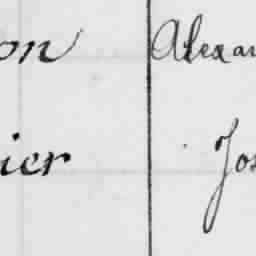 on Alexan
ier Jos